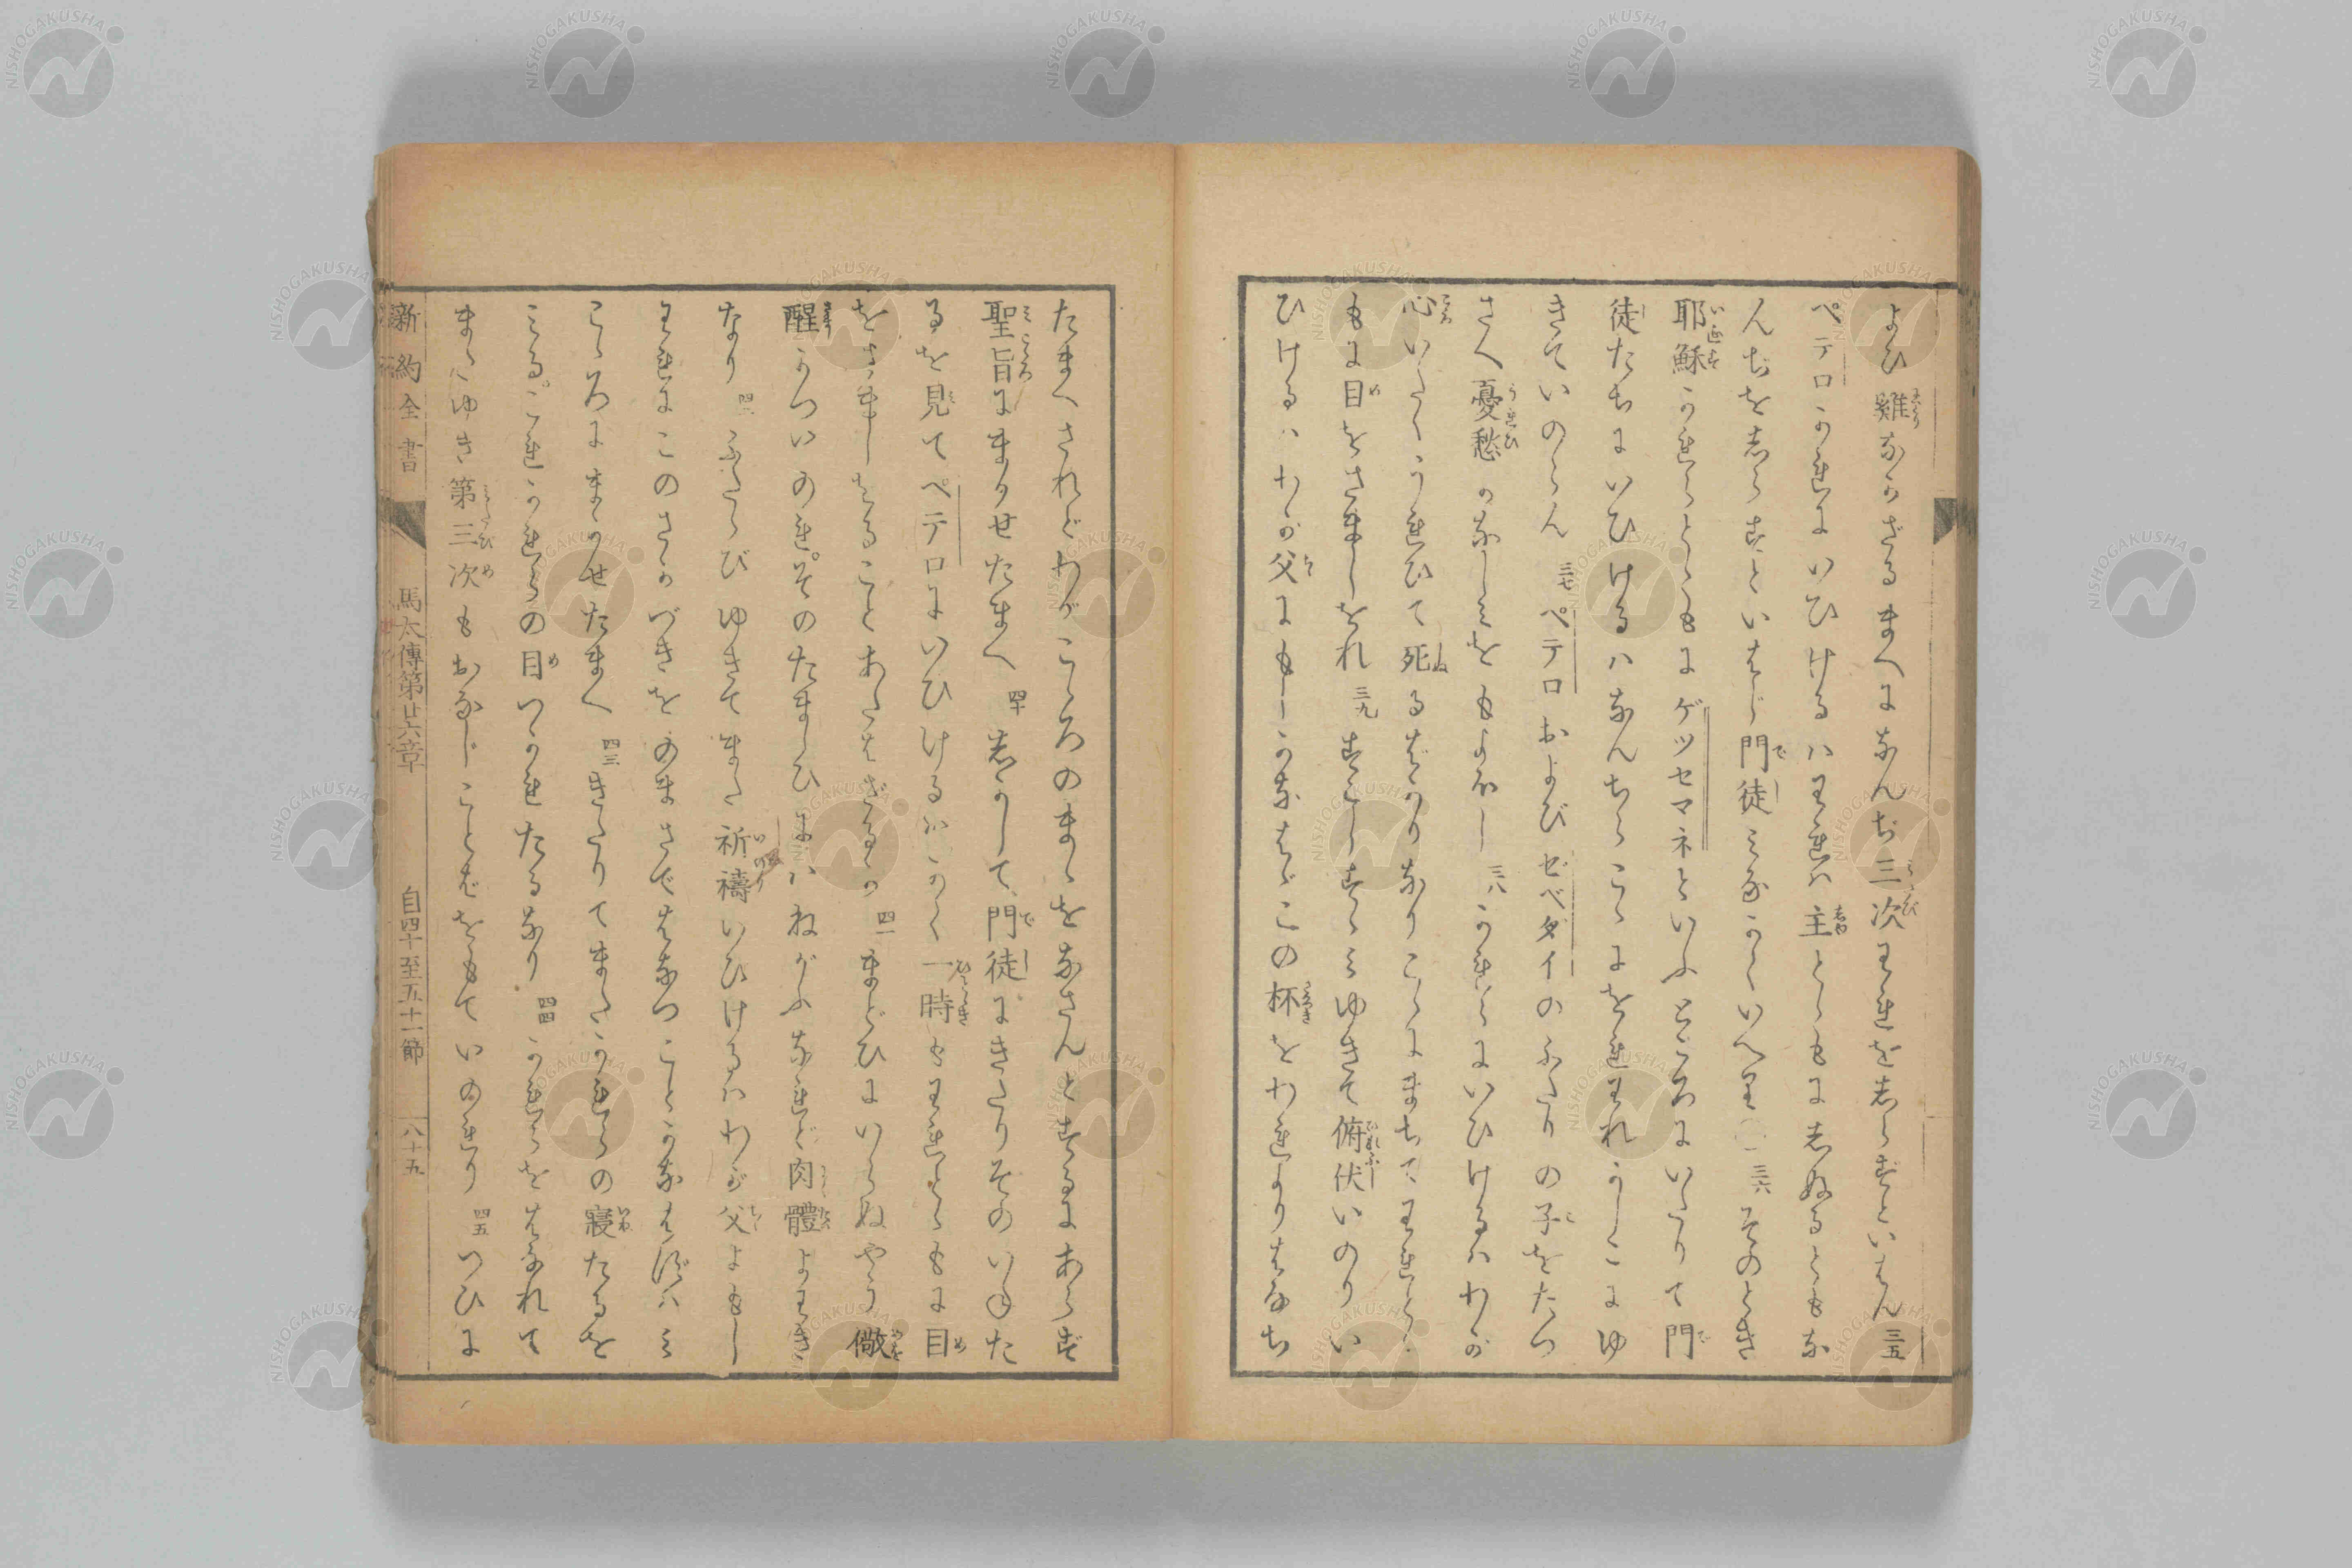 よひ雞なかざるまへになんぢ三次われを志らずといはん三五
ペテロかれにいひけるハわれハ主とゝもに志ぬるともな
んぢを志らずといはじ門徒みなかくいへり〇三六そのとき
耶穌かれらとゝもにゲツセマネといふところにいたりて門
徒たちにいひけるハなんぢらこゝにをれわれかしこにゆ
きていのらん三七ペテロおよびゼベダイのふたりの子をたづ
さへ憂愁かなしみをもよほし三八かれらにいひけるハわが
心いたくうれひて死るばかりなりこゝにまちてわれとゝ
もに目をさましをれ三九すこしすゝみゆきて俯伏いのりい
ひけるハわが父よもしかなはゞこの杯をわれよりはなち
たまへされどわがこゝろのまゝをなさんとするにあらず
聖旨にまかせたまへ四十志かして門徒にきたりそのいねた
るを見てペテロにいひけるハかく一時もわれとゝもに目
をさましをることあたはざるか四一まどひにいらぬやう儆
醒かついのれ。そのたましひハねがふなれど肉體よわき
なり四二ふたゝびゆきてまた祈禱いひけるハわが父よもし
われにこのさかづきをのまさではなつことかなはずバみ
こゝろにまかせたまへ四三きたりてまたかれらの寢たるを
みる。これかれらの目つかれたるなり四四かれらをはなれて
またゆき第三次もおなじことばをもていのれり四五つひに
新約全書 馬太傳第廿六章 自四十至五十一節 八十五